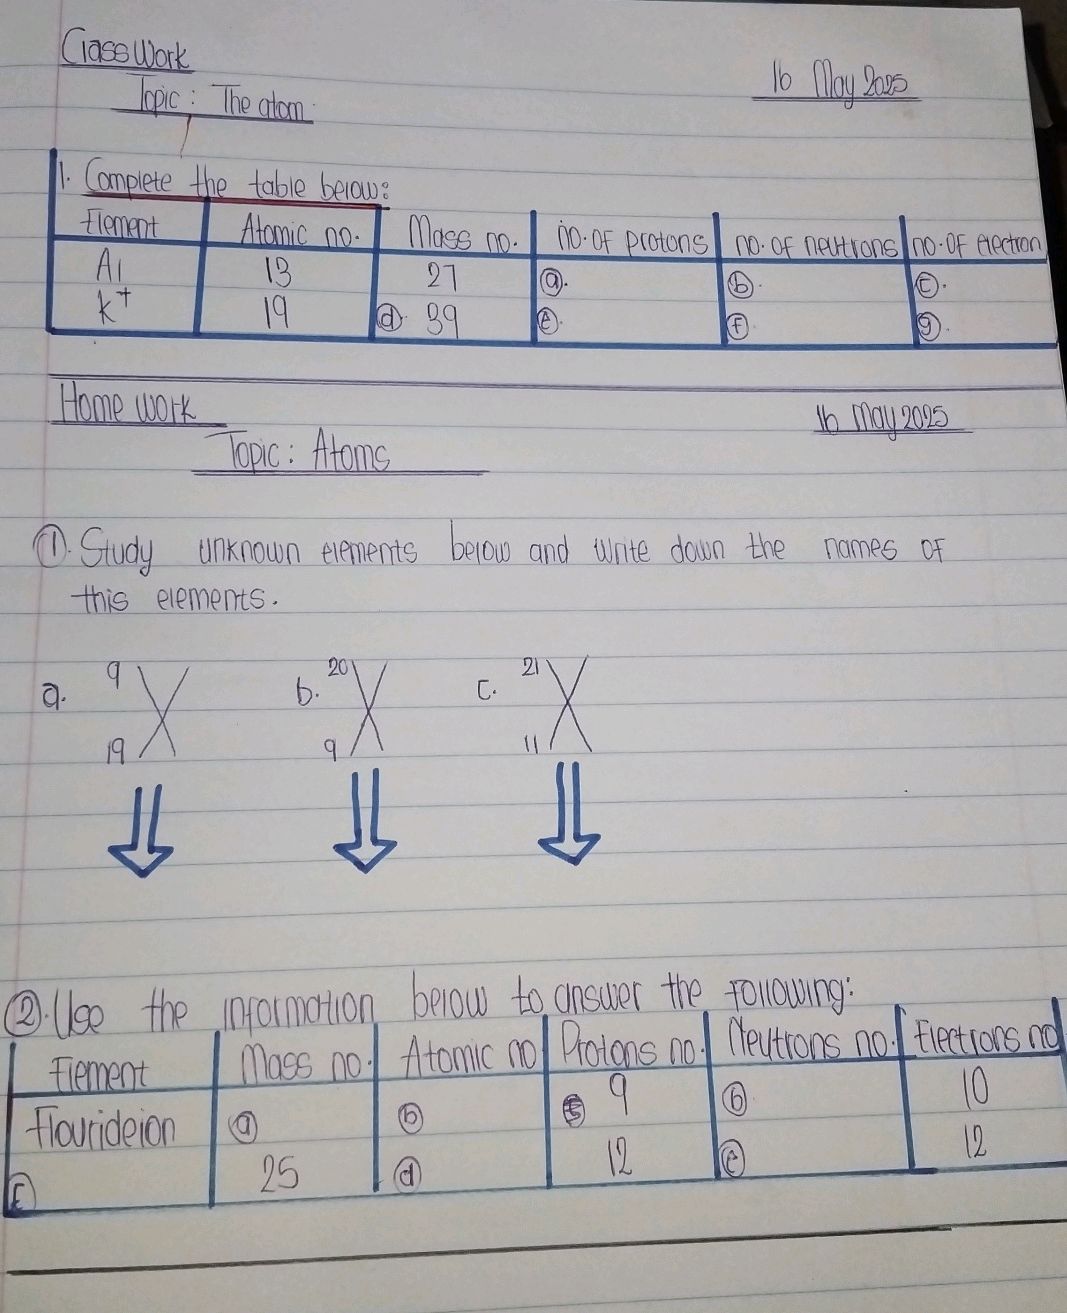 Class Work
16 May 2025
Topic: The atom
1. Complete the table below:
Element Atomic no. Mass no. no. of protons no. of neutrons no. of electron
Al 13 27 ⓐ. ⓑ. ⓒ.
K⁺ 19 ⓓ. 39 ⓔ. ⓕ ⓖ.
Home work
16 May 2025
Topic: Atoms
①. Study unknown elements below and write down the names of
this elements.
a. ⁹₁₉X b. ²⁰₉X c. ²¹₁₁X
②. Use the information below to answer the following:
Element Mass no. Atomic no Protons no. Neutrons no. Electrons no
Flourideion ⓐ ⓑ 9 ⓑ 10
ⓒ 25 ⓓ 12 ⓔ 12